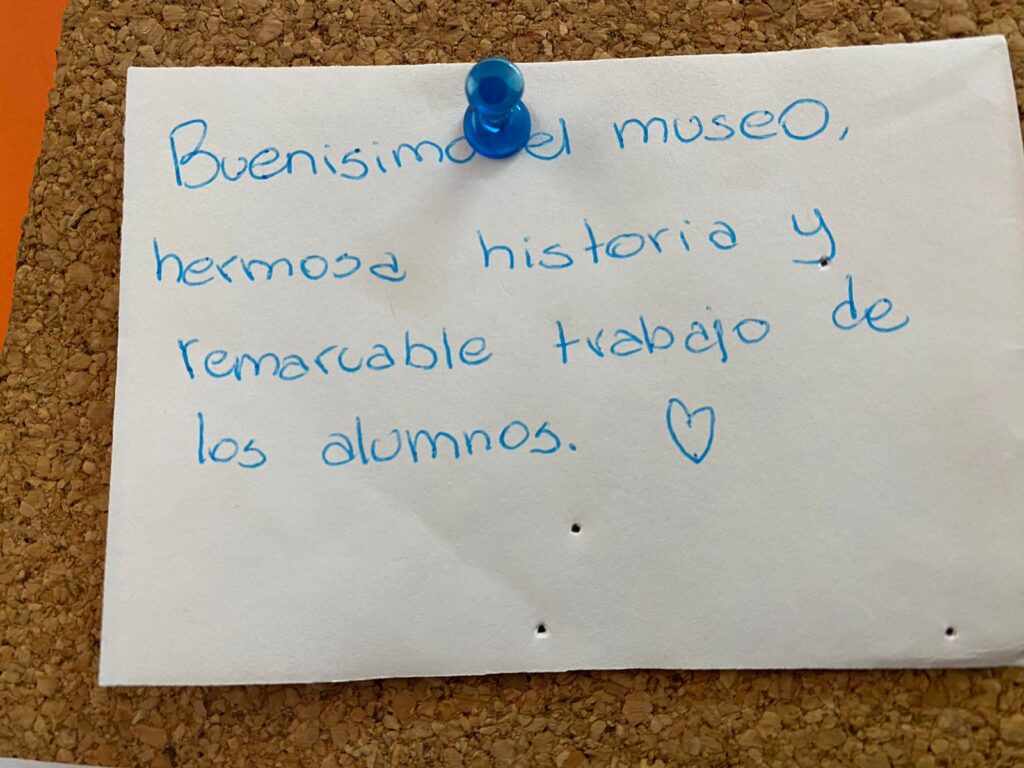 Buenisimo el museo,
hermosa historia y
remarcable trabajo de
los alumnos. ♡